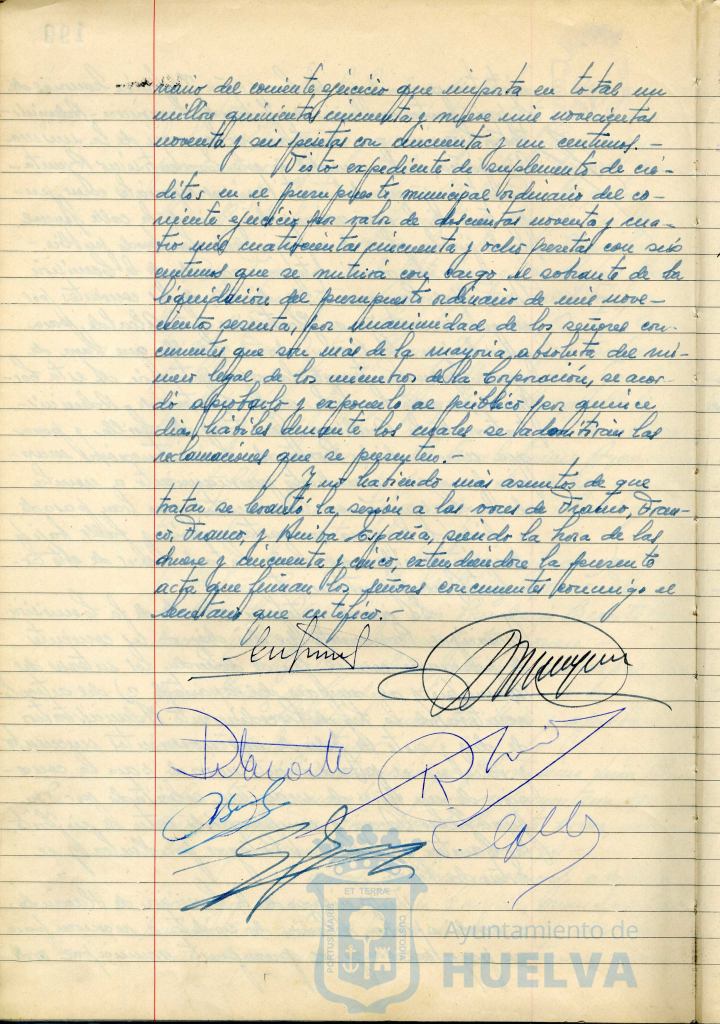 nario del corriente ejercicio que importa en total un
millón quinientas cincuenta y nueve mil novecientas
noventa y seis pesetas con cincuenta y un centimos.-
Visto expediente de suplemento de cré-
ditos en el presupuesto municipal ordinario del co-
rriente ejercicio por valor de doscientas noventa y cua-
tro mil cuatrocientas cincuenta y ocho pesetas con seis
centimos que se nutrirá con cargo al sobrante de la
liquidación del presupuesto ordinario de mil nove-
cientos sesenta, por unanimidad de los señores con-
currentes que son más de la mayoria absoluta del nú-
mero legal de los miembros de la Corporación, se acor-
dó aprobarlo y exponerlo al público por quince
dias hábiles durante los cuales se admitirán las
reclamaciones que se presenten.-
Y no habiendo más asuntos de que
tratar se levantó la sesión a las voces de Franco, Fran-
co, Franco, y Arriba España, siendo la hora de las
nueve y cincuenta y cinco, extendiendose la presente
acta que firman los señores concurrentes conmigo el
Secretario que certifico.-
ET TERRÆ
PORTUS MARIS
CUSTODIA
Ayuntamiento de
HUELVA